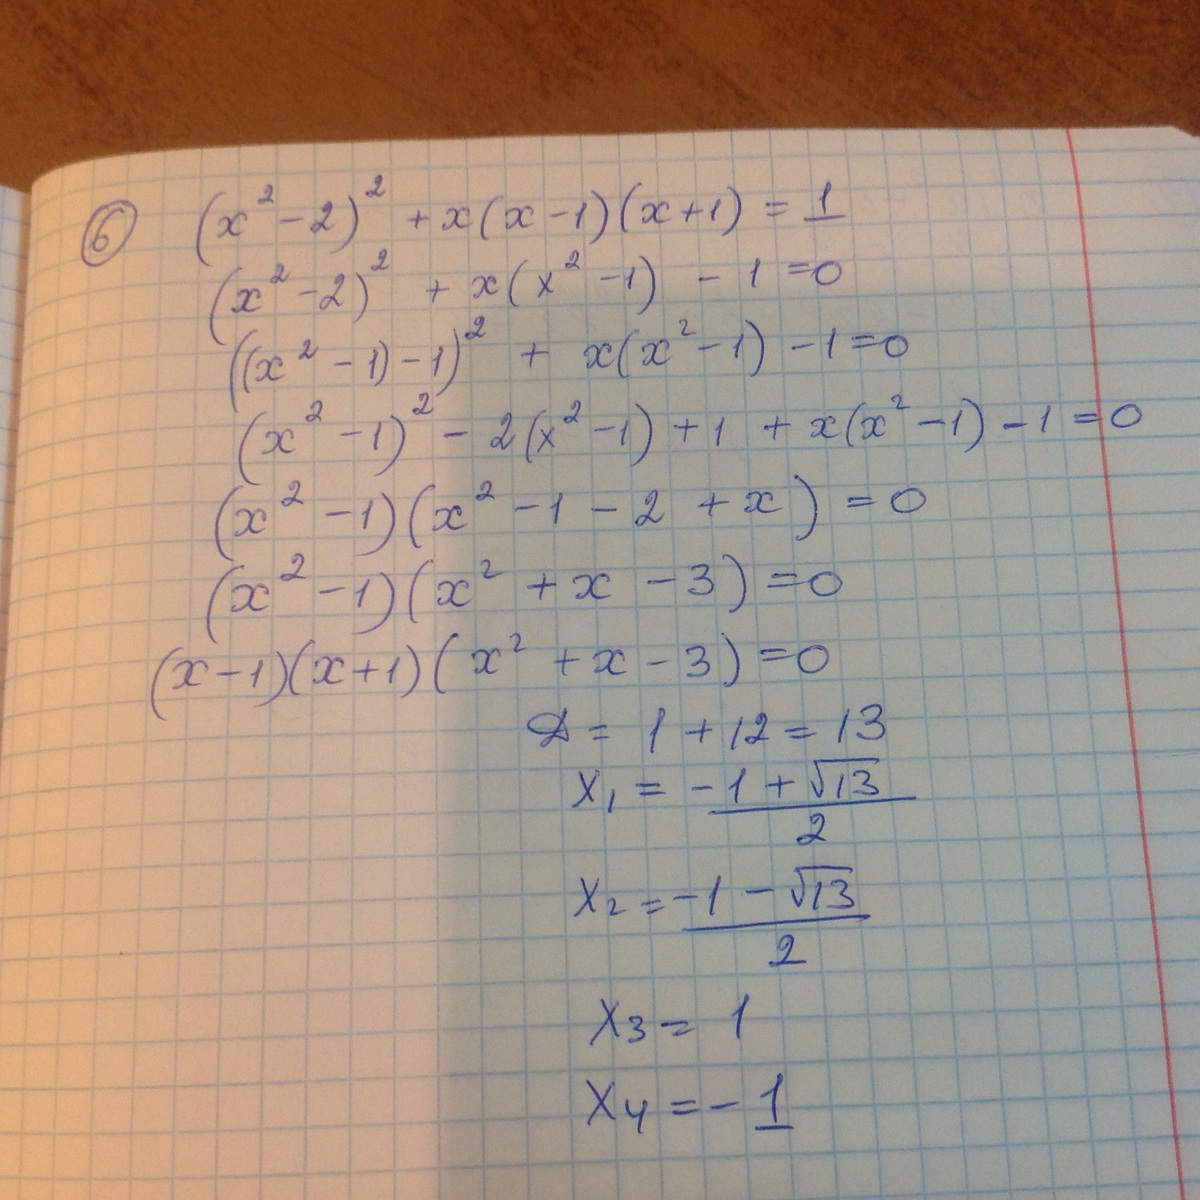 6 (x² - 2)² + x(x - 1)(x + 1) = 1
(x² - 2)² + x(x² - 1) - 1 = 0
((x² - 1) - 1)² + x(x² - 1) - 1 = 0
(x² - 1)² - 2(x² - 1) + 1 + x(x² - 1) - 1 = 0
(x² - 1)(x² - 1 - 2 + x) = 0
(x² - 1)(x² + x - 3) = 0
(x - 1)(x + 1)(x² + x - 3) = 0
D = 1 + 12 = 13
x₁ = -1 + √13
2
x₂ = -1 - √13
2
x₃ = 1
x₄ = -1